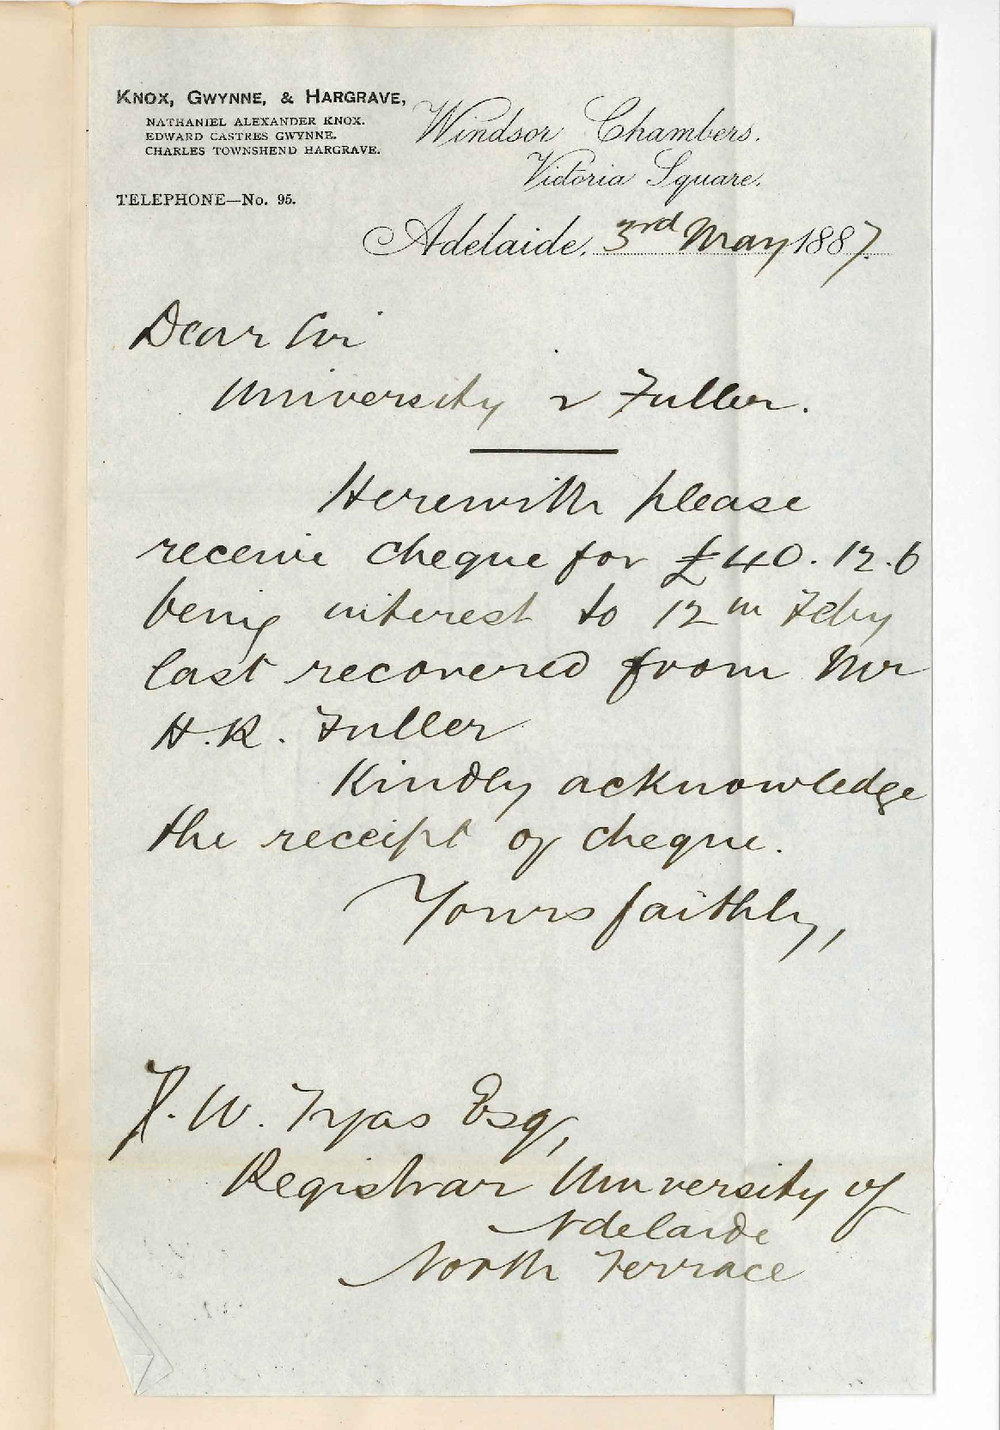 KNOX, GWYNNE, & HARGRAVE,
NATHANIEL ALEXANDER KNOX.
EDWARD CASTRES GWYNNE.
CHARLES TOWNSHEND HARGRAVE.
TELEPHONE—No. 95.
Windsor Chambers.
Victoria Square.
Adelaide, 3rd May 1887.
Dear Sir
University v Fuller.
Herewith please
receive cheque for £40.12.6
being interest to 12th Feby
last recovered from Mr
H.R. Fuller
Kindly acknowledge
the receipt of cheque.
Yours faithly,
J. W. Tyas Esq,
Registrar University of
Adelaide
North Terrace